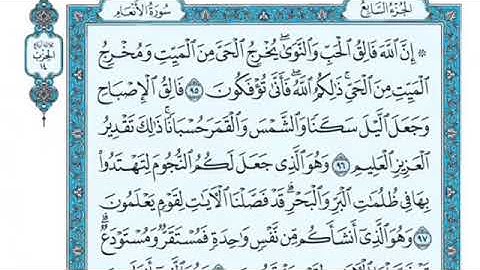 الجزء السابع
سورة الأنعام
۞ إِنَّ ٱللَّهَ فَالِقُ ٱلْحَبِّ وَٱلنَّوَىٰ يُخْرِجُ ٱلْحَىَّ مِنَ ٱلْمَيِّتِ وَمُخْرِجُ
ٱلْمَيِّتِ مِنَ ٱلْحَىِّ ذَٰلِكُمُ ٱللَّهُ فَأَنَّىٰ تُؤْفَكُونَ ٩٥ فَالِقُ ٱلْإِصْبَاحِ
وَجَعَلَ ٱلَّيْلَ سَكَنًا وَٱلشَّمْسَ وَٱلْقَمَرَ حُسْبَانًا ذَٰلِكَ تَقْدِيرُ
ٱلْعَزِيزِ ٱلْعَلِيمِ ٩٦ وَهُوَ ٱلَّذِى جَعَلَ لَكُمُ ٱلنُّجُومَ لِتَهْتَدُوا۟
بِهَا فِى ظُلُمَٰتِ ٱلْبَرِّ وَٱلْبَحْرِ قَدْ فَصَّلْنَا ٱلْءَايَٰتِ لِقَوْمٍ يَعْلَمُونَ
٩٧ وَهُوَ ٱلَّذِىٓ أَنشَأَكُم مِّن نَّفْسٍ وَٰحِدَةٍ فَمُسْتَقَرٌّ وَمُسْتَوْدَعٌ
الحزب
١٤